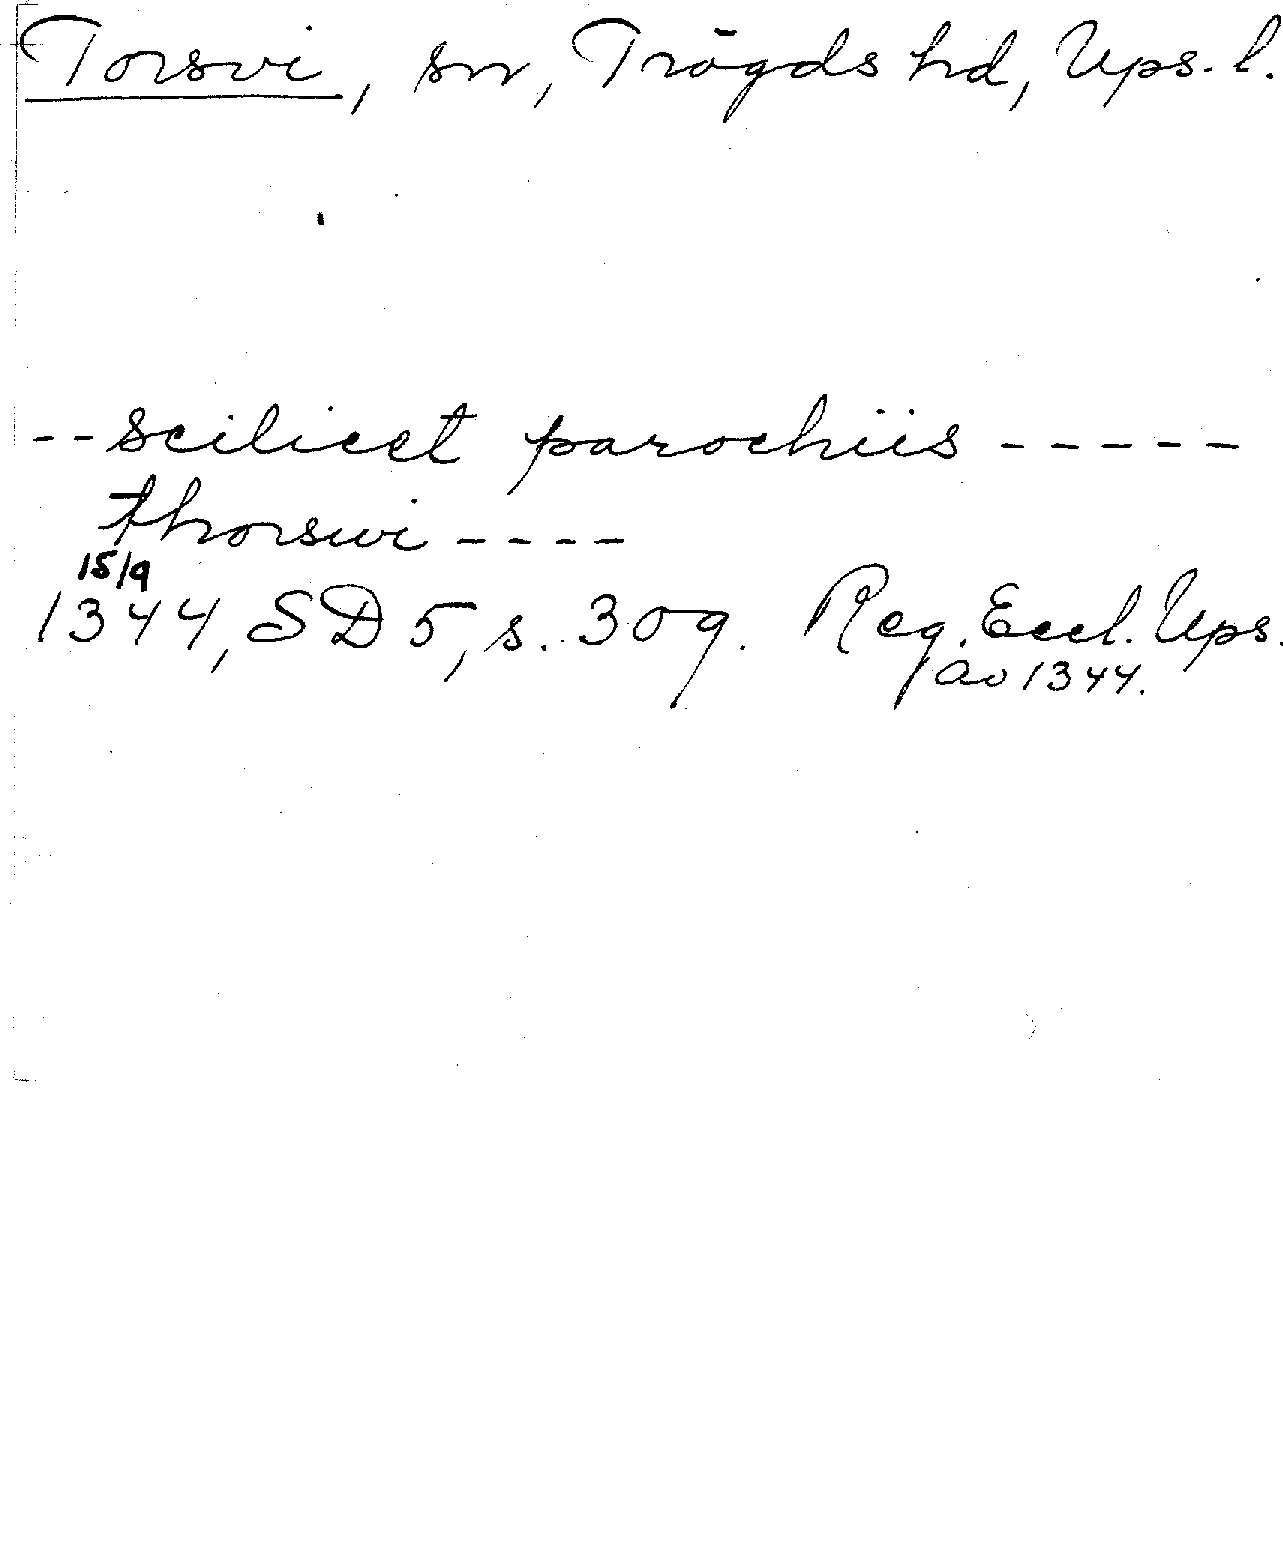 Torsvi, sn, Trögds hd, Ups. l.
-- scilicet parochiis -----
thorswi ----
15/9
1344, SD 5, s. 309. Reg. Eccl. Ups.
av 1344.